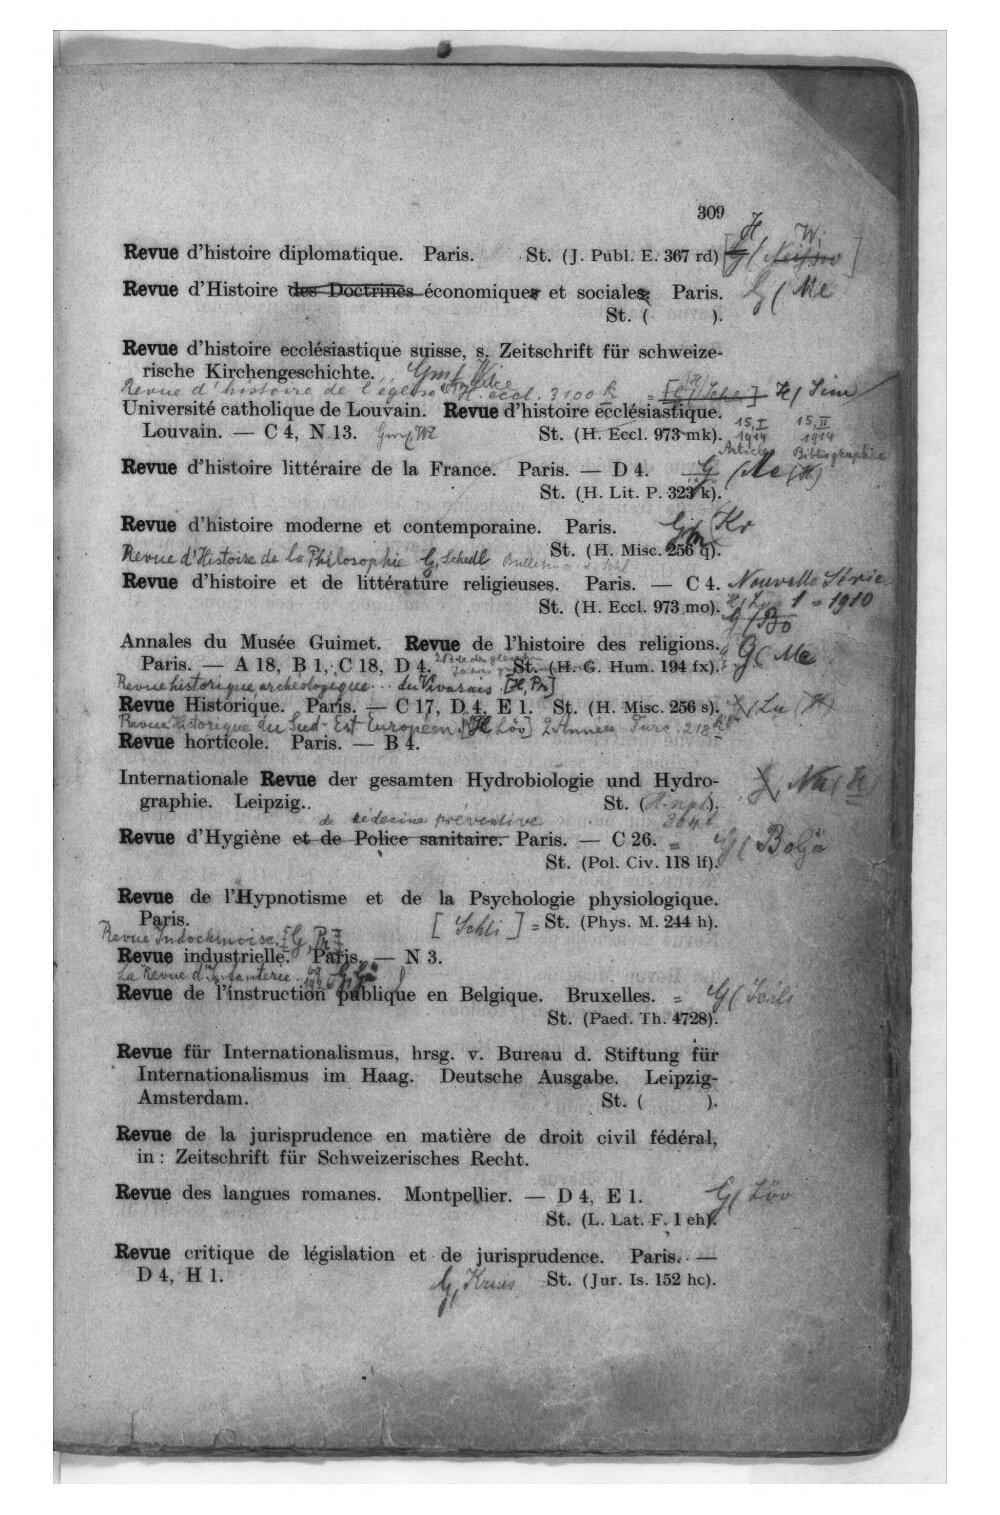 309
Revue d'histoire diplomatique. Paris. St. (J. Publ. E. 367 rd)
Revue d'Histoire des Doctrines économiques et sociales. Paris. G ( Me
St. ( ).
Revue d'histoire ecclésiastique suisse, s. Zeitschrift für schweize-
rische Kirchengeschichte.
Revue d'histoire de l'église H. eccl. 3100 k H( Sim
Université catholique de Louvain. Revue d'histoire ecclésiastique. 15, I 15, II
Louvain. — C 4, N 13. St. (H. Eccl. 973 mk). 1914 1914
Article Bibliographie
Revue d'histoire littéraire de la France. Paris. — D 4. G (Me (H)
St. (H. Lit. P. 323 k).
Revue d'histoire moderne et contemporaine. Paris. Kr
St. (H. Misc. 256 q).
Revue d'Histoire de la Philosophie G, Schedl
Revue d'histoire et de littérature religieuses. Paris. — C 4. Nouvelle Série
St. (H. Eccl. 973 mo). 1 = 1910
G (Bo
Annales du Musée Guimet. Revue de l'histoire des religions. G( Me
Paris. — A 18, B 1, C 18, D 4. St. (H. G. Hum. 194 fx).
Revue historique, archéologique... du Vivarais [H, Pr]
Revue Historique. Paris. — C 17, D 4, E 1. St. (H. Misc. 256 s). Lu (H)
Revue Historique du Sud-Est-Européen. [H, Löv] 2 Années Turc. 218
Revue horticole. Paris. — B 4.
Internationale Revue der gesamten Hydrobiologie und Hydro- Na (H)
graphie. Leipzig.. St. (H. nat.).
de médecine préventive
Revue d'Hygiène et de Police sanitaire. Paris. — C 26. = G ( BoGä
St. (Pol. Civ. 118 lf).
Revue de l'Hypnotisme et de la Psychologie physiologique.
Paris. [ Schli ] = St. (Phys. M. 244 h).
Revue Indochinoise. [G, Pr]
Revue industrielle. Paris. — N 3.
La Revue d'Infanterie. 69 1926 G, Gä
Revue de l'instruction publique en Belgique. Bruxelles. = G( Schli
St. (Paed. Th. 4728).
Revue für Internationalismus, hrsg. v. Bureau d. Stiftung für
Internationalismus im Haag. Deutsche Ausgabe. Leipzig-
Amsterdam. St. ( ).
Revue de la jurisprudence en matière de droit civil fédéral,
in: Zeitschrift für Schweizerisches Recht.
Revue des langues romanes. Montpellier. — D 4, E 1. G( Löv
St. (L. Lat. F. 1 eh).
Revue critique de législation et de jurisprudence. Paris. —
D 4, H 1. G, Kraus St. (Jur. Is. 152 hc).